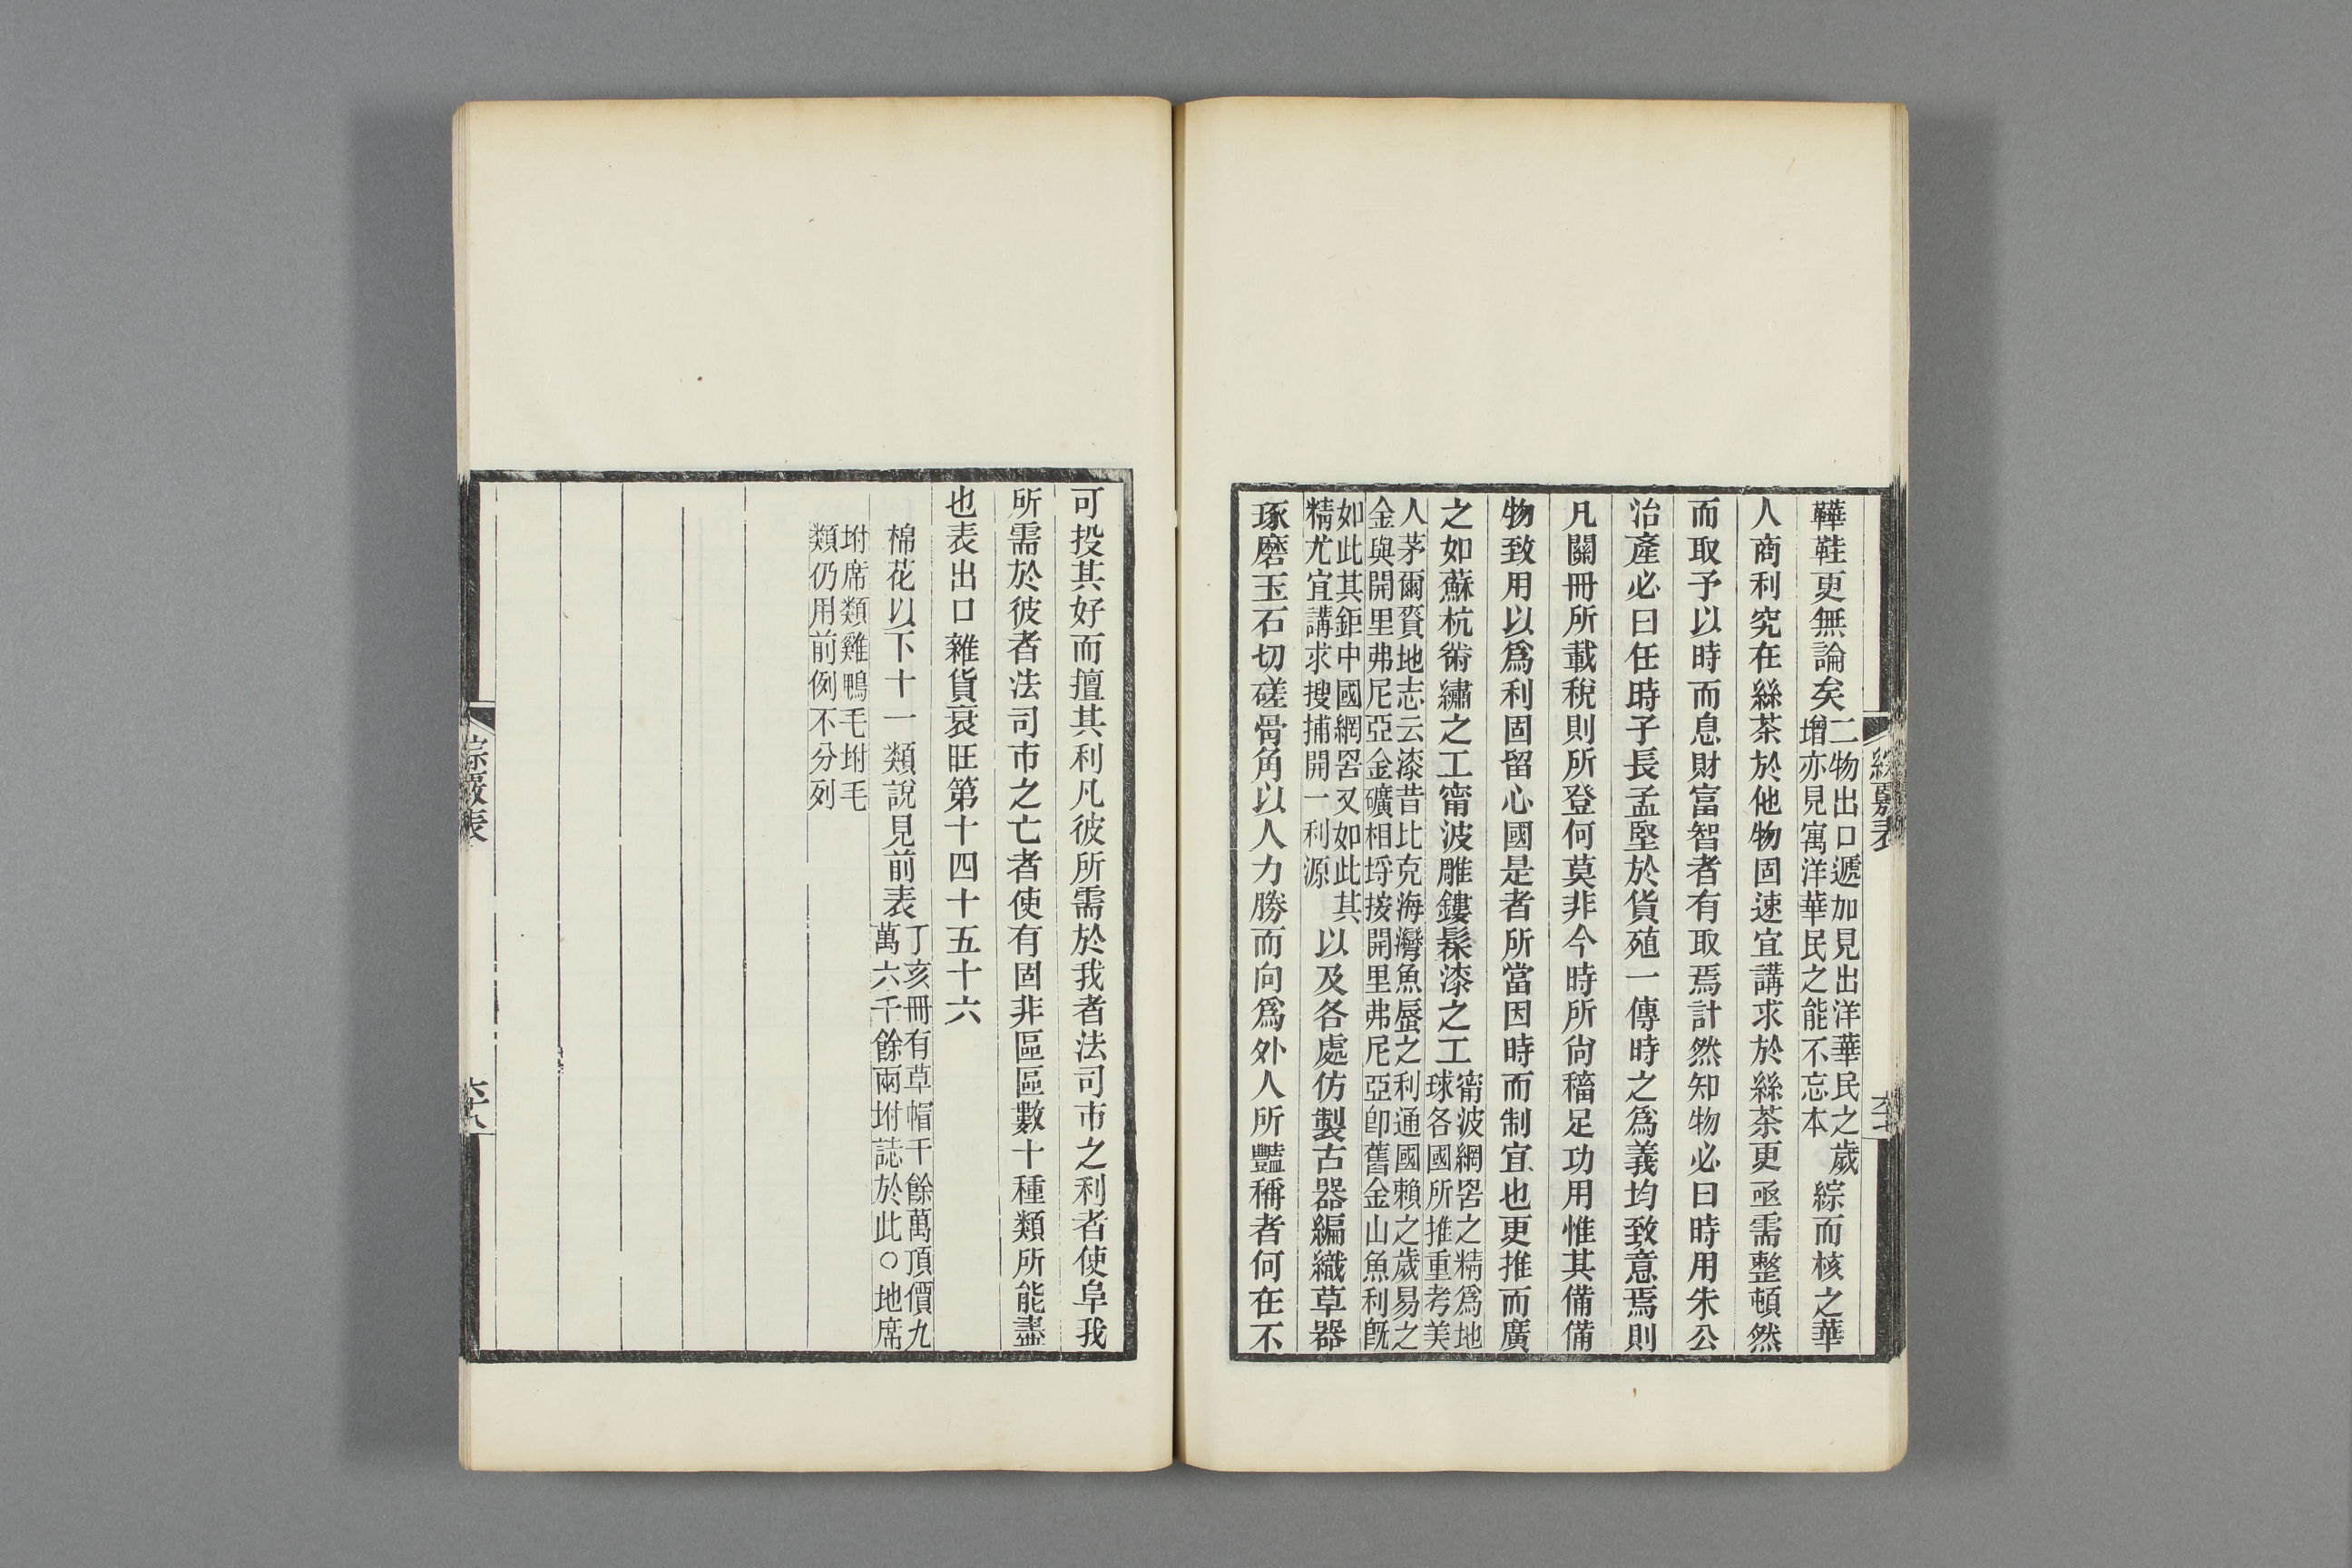 鞾鞋更無論矣二物出口遞加見出洋華民之歲增亦見寓洋華民之能不忘本綜而核之華
人商利究在絲茶於他物固速宜講求於絲茶更亟需整頓然
而取予以時而息財富智者有取焉計然知物必曰時用朱公
治產必曰任時子長孟堅於貨殖一傳時之爲義均致意焉則
凡關冊所載稅則所登何莫非今時所尙稸足功用惟其備備
物致用以爲利固留心國是者所當因時而制宜也更推而廣
之如蘇杭術繡之工甯波雕鏤髹漆之工甯波網罟之精爲地球各國所推重考美
人茅爾賚地志云漆昔比克海灣魚蜃之利通國賴之歲易之金與開里弗尼亞金礦相埒按開里弗尼亞卽舊金山魚利旣
如此其鉅中國網罟又如此其精尤宜講求搜捕開一利源以及各處仿製古器編織草器
琢磨玉石切磋骨角以人力勝而向爲外人所豔稱者何在不
可投其好而擅其利凡彼所需於我者法司市之利者使阜我
所需於彼者法司市之亡者使有固非區區數十種類所能盡
也表出口雜貨衰旺第十四十五十六
棉花以下十一類說見前表丁亥冊有草帽千餘萬頂價九萬六千餘兩坿誌於此○地席
坿席類雞鴨毛坿毛類仍用前例不分列
綜覈表
六十八